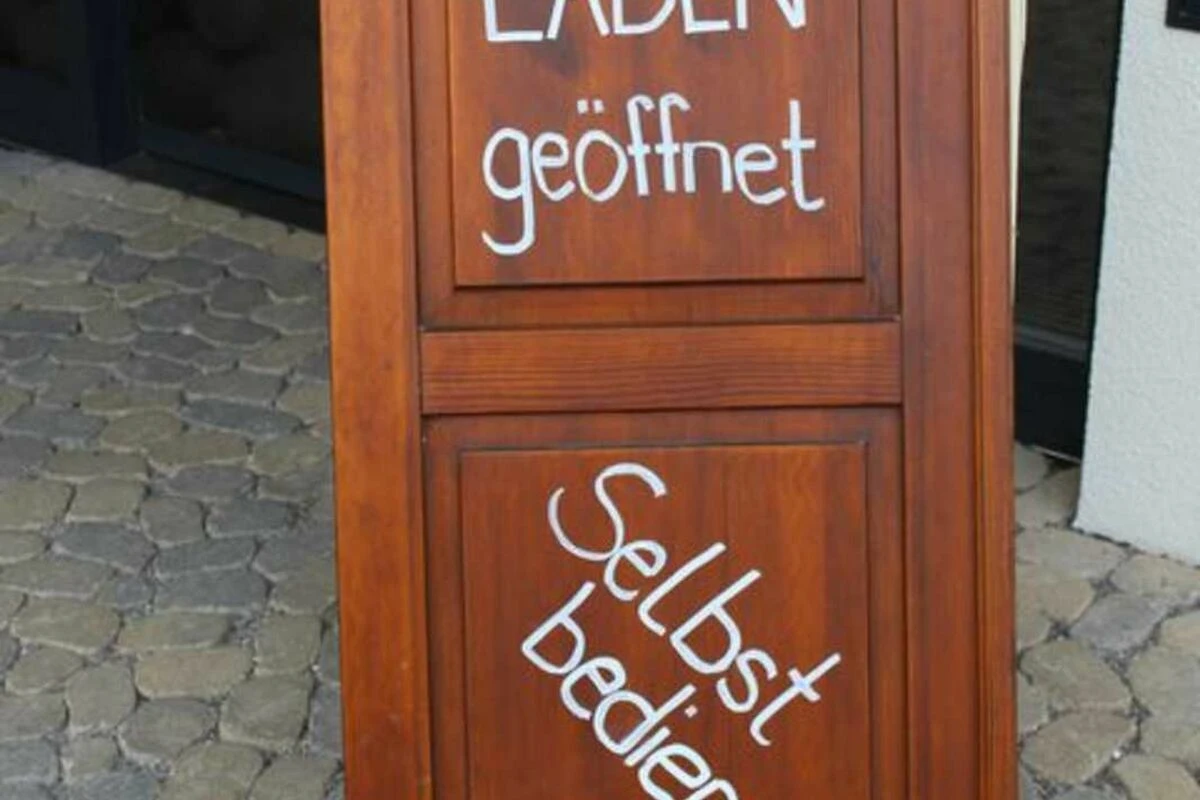 LADEN
geöffnet
Selbst
bedien